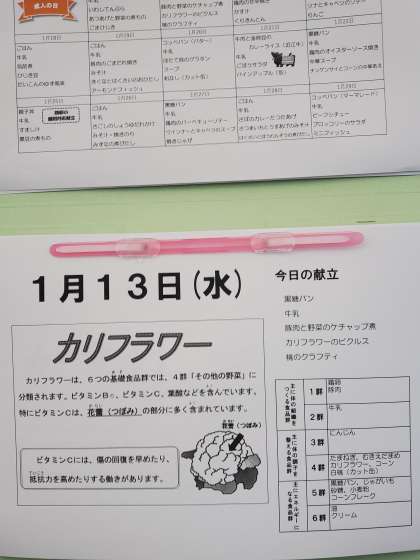 成人の日
いわしてんぷら
あつあげと野菜の煮もの
豚肉と野菜のケチャップ煮
カリフラワーのピクルス
桃のクラフティ
くりきんとん
りんご
1月18日
1月19日
1月20日
1月21日
1月22日
ごはん
牛乳
ひじき豆
ごはん
牛乳
みそ汁
アーモンドフィッシュ
コッペパン（バター）
牛乳
ほたて貝のグラタン
スープ
牛肉と金時豆の
カレーライス（近江牛）
牛乳
ごぼうサラダ
パインアップル（缶）
黒糖パン
牛乳
鶏肉のオイスターソース焼き
中華スープ
1月25日
1月26日
1月27日
1月28日
1月29日
親子丼
牛乳
すまし汁
黒豆の煮もの
ごはん
牛乳
みそ汁
黒糖パン
牛乳
鶏肉のバーベキューソテー
ウインナーとキャベツのスープ
ごはん
牛乳
コッペパン（マーマレード）
牛乳
ビーフシチュー
ブロッコリーのサラダ
ミニフィッシュ
1月13日(水)
今日の献立
黒糖パン
牛乳
豚肉と野菜のケチャップ煮
カリフラワーのピクルス
桃のクラフティ
カリフラワー
カリフラワーは、6つの基礎食品群では、4群「その他の野菜」に
分類されます。ビタミンB₁、ビタミンC、葉酸などを含んでいます。
特にビタミンCは、花蕾（つぼみ）の部分に多く含まれています。
花蕾（つぼみ）
ビタミンCには、傷の回復を早めたり、
抵抗力を高めたりする働きがあります。
主に体の組織をつくる食品群
1群
鶏卵
豚肉
2群
牛乳
主に体の調子を整える食品群
3群
にんじん
4群
たまねぎ、むきえだまめ
カリフラワー、コーン
白桃（カット缶）
主にエネルギーになる食品群
5群
黒糖パン、じゃがいも
砂糖、小麦粉
コーンフレーク
6群
油
クリーム